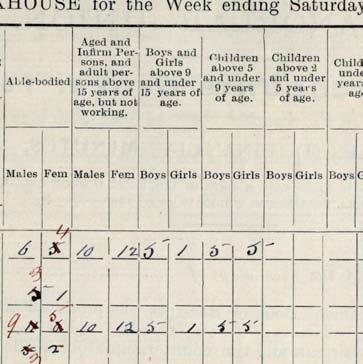 KHOUSE for the Week ending Saturday
Able-bodied
Aged and Infirm Per-
sons, and
adult per-
sons above
15 years of
age, but not
working.
Boys and
Girls
above 9
and under
15 years of
age.
Children
above 5
and under
9 years
of age.
Children
above 2
and under
5 years
of age.
Child
unde
years
ag
Males Fem Males Fem Boys Girls Boys Girls Boys Girls Boys G
4
6 5 10 12 5 1 5 5
3
1
5
9 10 12 5 1 5 5